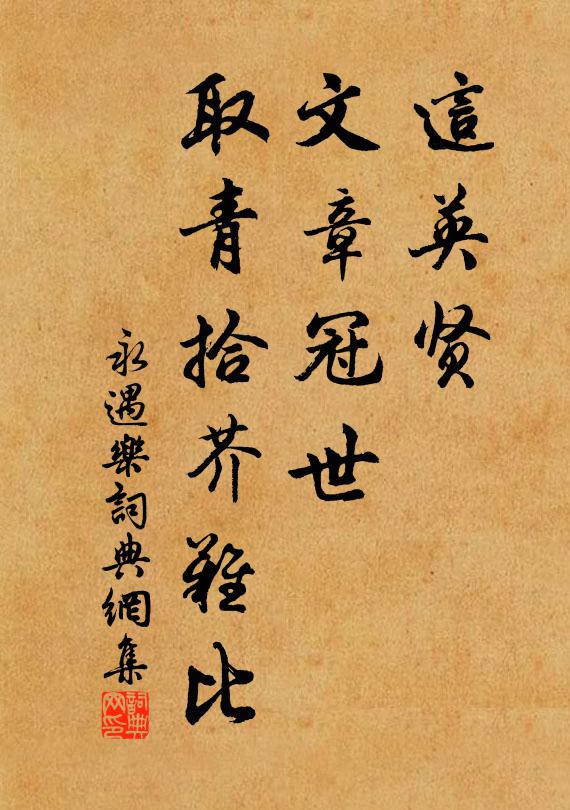 這英贤
文章冠世
取青拾芥難比
永遇樂詞典網集
詞典网印